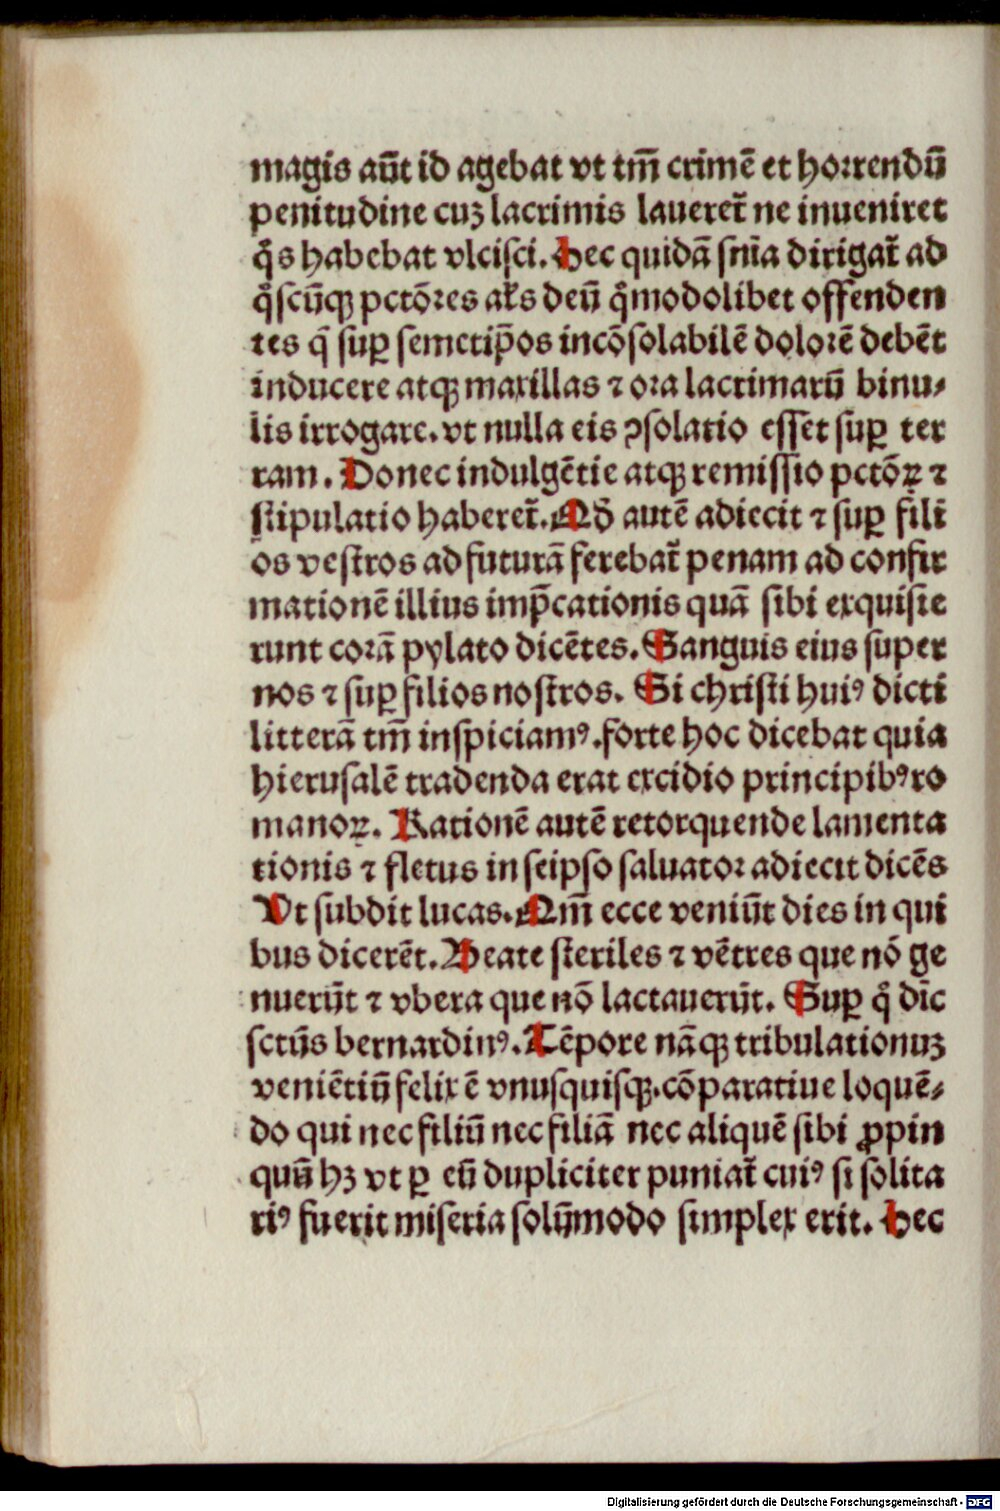 magis aūt id agebat vt tm̄ crimē et horrendū
penitudine cuꝫ lacrimis lauereť ne inueniret
q̊s habebat vlcisci. Hec quidā snīa dirigať ad
q̊scūqꝫ pctōres ałs deū q̊modolibet offenden
tes q̄ suꝑ semetip̄os incōsolabilē dolorē debēt
inducere atqꝫ maxillas ⁊ ora lacrimarū binu⸗
lis irrogare. vt nulla eis ꝯsolatio esset suꝑ ter
ram. Donec indulgētie atqꝫ remissio pctōꝝ ⁊
stipulatio habereť. Qď autē adiecit ⁊ suꝑ fili
os vestros ad futurā ferebať penam ad confir
mationē illius imp̄cationis quā sibi exquisie
runt corā pylato dicētes. Sanguis eius super
nos ⁊ suꝑ filios nostros. Si christi huiꝰ dicti
litterā tm̄ inspiciamꝰ. forte hoc dicebat quia
hierusalē tradenda erat excidio principibꝰ ro
manoꝝ. Rationē autē retorquende lamenta
tionis ⁊ fletus in seipso saluator adiecit dicēs
Vt subdit lucas. Qm̄ ecce veniūt dies in qui
bus dicerēt. Beate steriles ⁊ vētres que nō ge
nuerūt ⁊ vbera que nō lactauerūt. Suꝑ q̊ dīc
sctūs bernardinꝰ. Tēpore nāqꝫ tribulationuꝫ
veniētiū felix ē vnusquisqꝫ. cōparatiue loquē⸗
do qui nec filiū nec filiā nec aliquē sibi ꝓpin
quū hꝫ vt ꝑ eū dupliciter puniať cuiꝰ si solita
riꝰ fuerit miseria solūmodo simplex erit. Hec
Digitalisierung gefördert durch die Deutsche Forschungsgemeinschaft - DFG